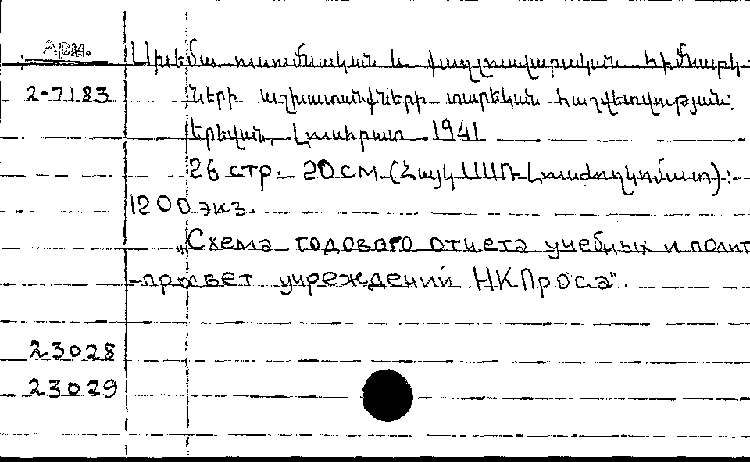 Арм.
Սխեմա ուսումնական և քաղլուսավարական հիմնարկ-
2-7183 ների աշխատանքների տարեկան հաշվետվության:
Երեվան, Լուսհրատ 1941
26 стр. 20 см. (ՀայկՍՍՌ Լուսժողկոմատ):
1200 экз.
„Схема годового отчета учебных и полит
-просвет учреждений НКПроса".
23028
23029